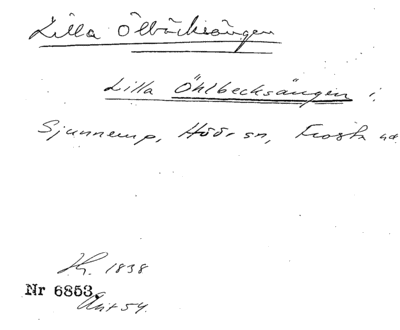 Lilla Ölbäcksängen
Lilla Öhlbecksängen i
Sjunnerup, Höör sn, Frosta hd
1838
Nr 6853.
54.